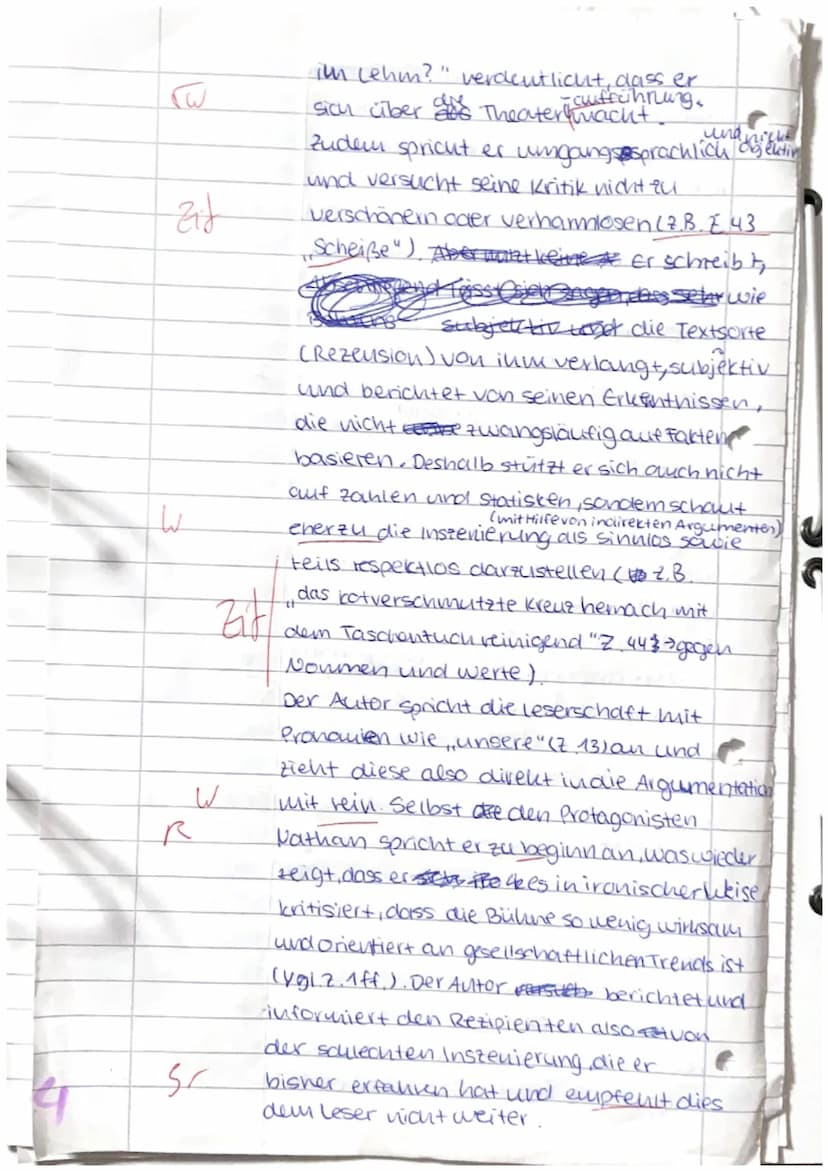 im Lehm?" verdeutlicht, dass er
√W
sich über die Theateraufführung.
macht.
Zudem spricht er umgangssprachlich und nicht objektiv
und versucht seine Kritik nicht zu
Zit
verschönern oder verharmlosen (z.B. Z.43
„Scheiße"). Er schreibt,
wie
die Textsorte
(Rezension) von ihm verlangt, subjektiv
und berichtet von seinen Erkentnissen,
die nicht zwangsläufig auf Fakten
basieren. Deshalb stützt er sich auch nicht
auf Zahlen und Statisken, sondern schaut
(mit Hilfe von indirekten Argumenten)
W
eher zu die Inszenierung als sinnlos sowie
teils respektlos darzustellen (z.B.
„das kotverschmutzte Kreuz hernach mit
Zit
dem Taschentuch reinigend" Z.44f → gegen
Noumen und Werte).
Der Autor spricht die Leserschaft mit
Pronomen wie „unsere" (Z.13) an und
zieht diese also direkt in die Argumentation
W
mit rein. Selbst den Protagonisten
R
Nathan spricht er zu beginn an, was wieder
zeigt, dass er es in ironischer Weise
kritisiert, dass die Bühne so wenig wirksam
und orientiert an gesellschaftlichen Trends ist
(vgl. Z. 1ff.). Der Autor berichtet und
informiert den Rezipienten also von
der schlechten Inszenierung, die er
Sr
bisher erfahren hat und empfehlt dies
4
dem Leser nicht weiter.